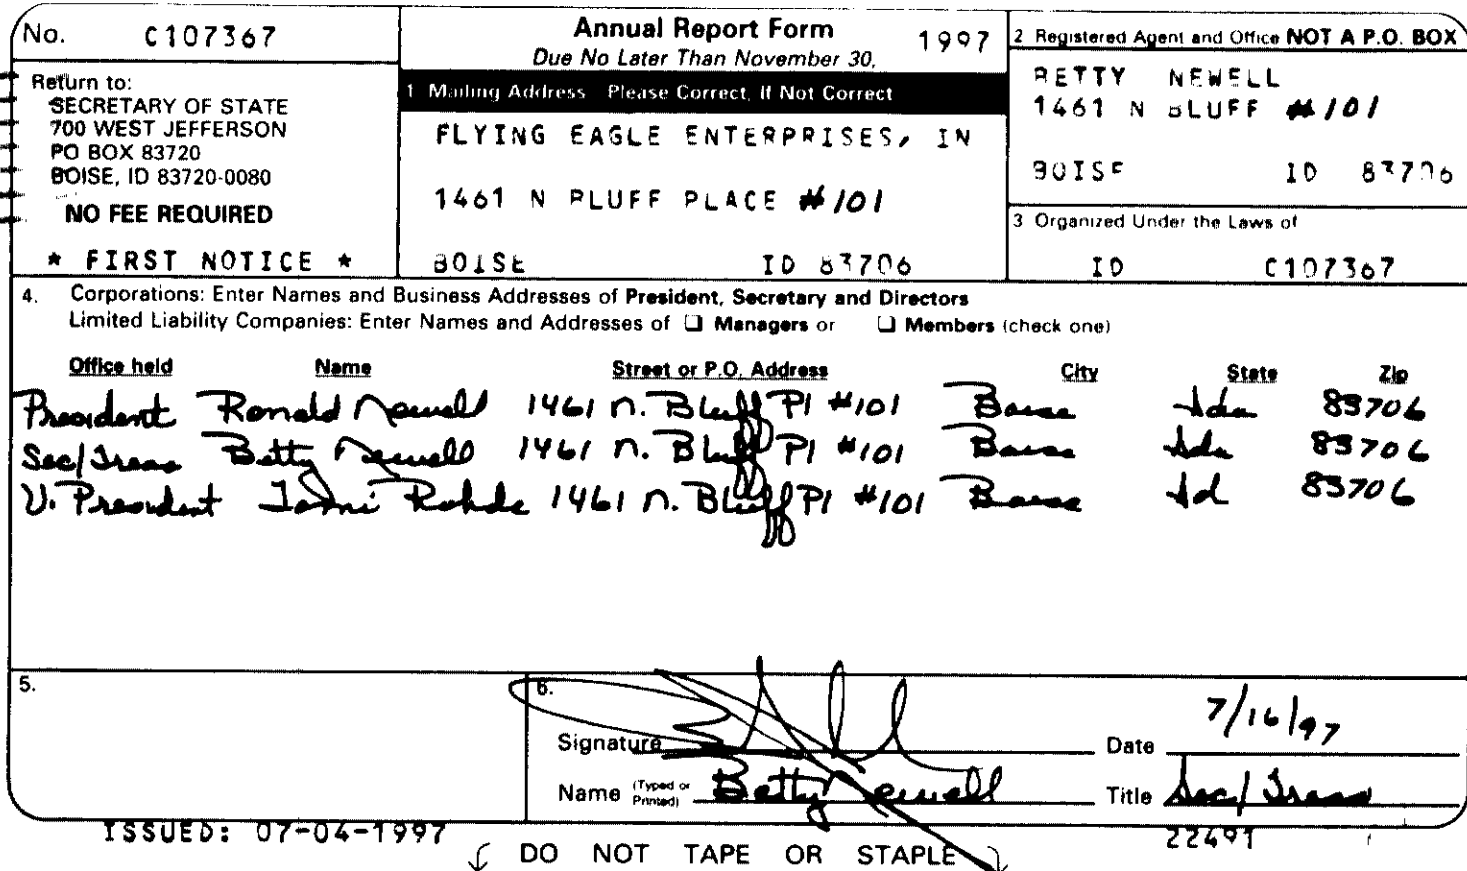 No. C107367
Return to:
SECRETARY OF STATE
700 WEST JEFFERSON
PO BOX 83720
BOISE, ID 83720-0080
NO FEE REQUIRED
* FIRST NOTICE *
Annual Report Form 1997
Due No Later Than November 30,
1 Mailing Address Please Correct, If Not Correct
FLYING EAGLE ENTERPRISES, IN
1461 N BLUFF PLACE #101
BOISE ID 83706
2 Registered Agent and Office NOT A P.O. BOX
BETTY NEWELL
1461 N BLUFF #101
BOISE ID 83706
3 Organized Under the Laws of
ID C107367
4. Corporations: Enter Names and Business Addresses of President, Secretary and Directors
Limited Liability Companies: Enter Names and Addresses of ❑ Managers or ❑ Members (check one)
Office held Name Street or P.O. Address City State Zip
President Ronald Newell 1461 N. Bluff Pl #101 Boise Ida 83706
Sec/Treas Betty Newell 1461 N. Bluff Pl #101 Boise Ida 83706
V. President Rohde 1461 N. Bluff Pl #101 Boise Id 83706
5.
6.
Signature Date 7/16/97
Name (Typed or Printed) Betty Newell Title Sec/Treas
ISSUED: 07-04-1997 22491
DO NOT TAPE OR STAPLE